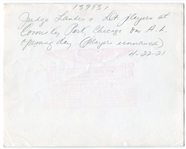 139321
Judge Landis & Det. players at
Comiskey Park, Chicago on A.L.
opening day (players unnamed)
4-22-21